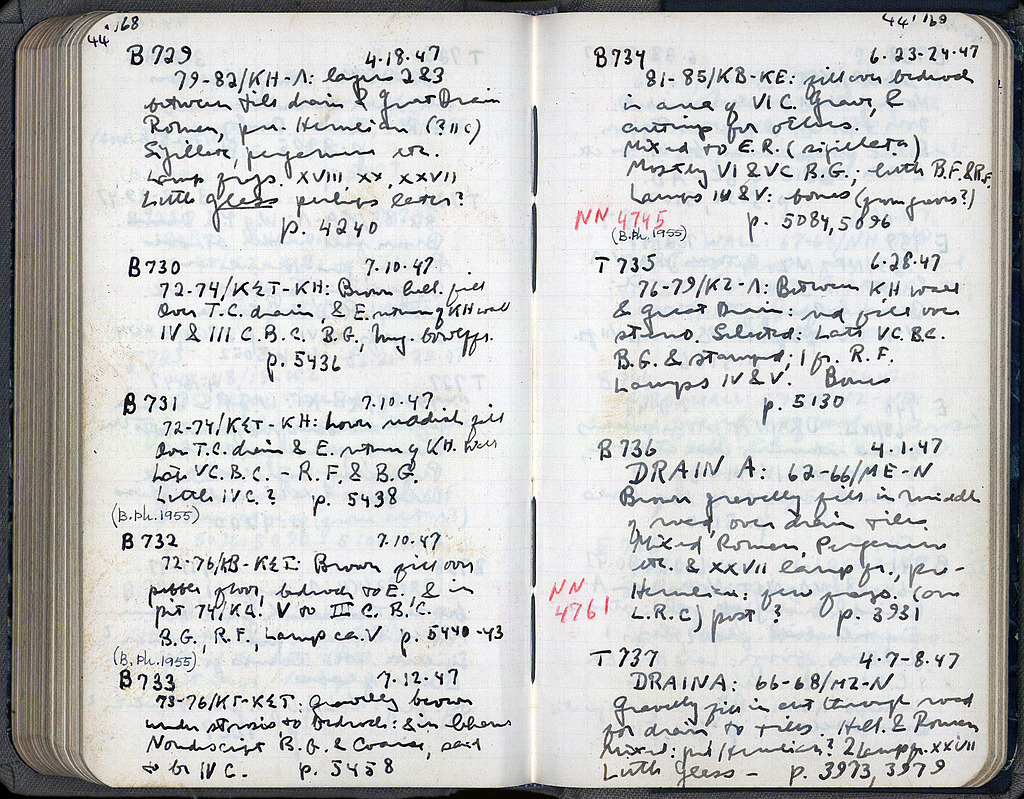 44' 168
B 729 4·18·47
79-82/KH-Λ: layers 2&3
between tile drain & Great Drain
Roman, pre-Herulian (? II C)
Sigillata, pergamene etc.
Lamp frgs. XVIII, XX, XXVII
Little glass perhaps later?
p. 4240
B 730 7·10·47
72-74/KΣΤ-KH: Brown fill
Over T.C. drain, & E. return of KH wall
IV & III C. B.C. B.G.,
p. 5436
B 731 7·10·47
72-74/KΣΤ-KH: fill
Over T.C. drain & E. return of KH. wall
Late V C. B.C. - R.F. & B.G.
Little IV C.? p. 5438
(B.Ph. 1955)
B 732 7·10·47
72-76/KB-KΣΤ: Brown fill over
floor, bedrock to E. & in
pit 74/KΔ! V to III C. B.C.
B.G., R.F., Lamp ca. V p. 5440-43
(B.Ph. 1955)
B 733 7·12·47
73-76/KΓ-KΣΤ: Gravelly brown
under to bedrock:
Nondescript B.G. & Coarse, said
to be IV C. p. 5458
44' 169
B 734 6-23-24-47
81-85/KB-KE: fill over bedrock
in area of VI C. Grave, &
cuttings for others.
Mixed to E.R. (sigillata)
Mostly VI & V C. B.G., little B.F. & R.F.
Lamps IV & V: bones (from graves?)
NN 4745 p. 5084, 5096
(B.Ph. 1955)
T 735 6·28·47
76-79/KZ-Λ: Between KH wall
& Great Drain: red fill over
Selected: Late V C. B.C.
B.G. & stamped; 1 fr. R.F.
Lamps IV & V. Bones
p. 5130
B 736 4·1·47
DRAIN A: 62-66/ME-N
Brown gravelly fill in middle
of road, over drain tiles.
Mixed Roman, Pergamene
etc. & XXVII lamp fr., pre-
Herulian: few frags. (one
NN 4761
L.R.C) post? p. 3931
T 737 4·7-8·47
DRAIN A: 66-68/MZ-N
Gravelly fill in cut through road
for drain to tiles Hell. & Roman
Mixed: pre/Herulian? 2 lamp fr. XXVII
Little Glass - p. 3973, 3979